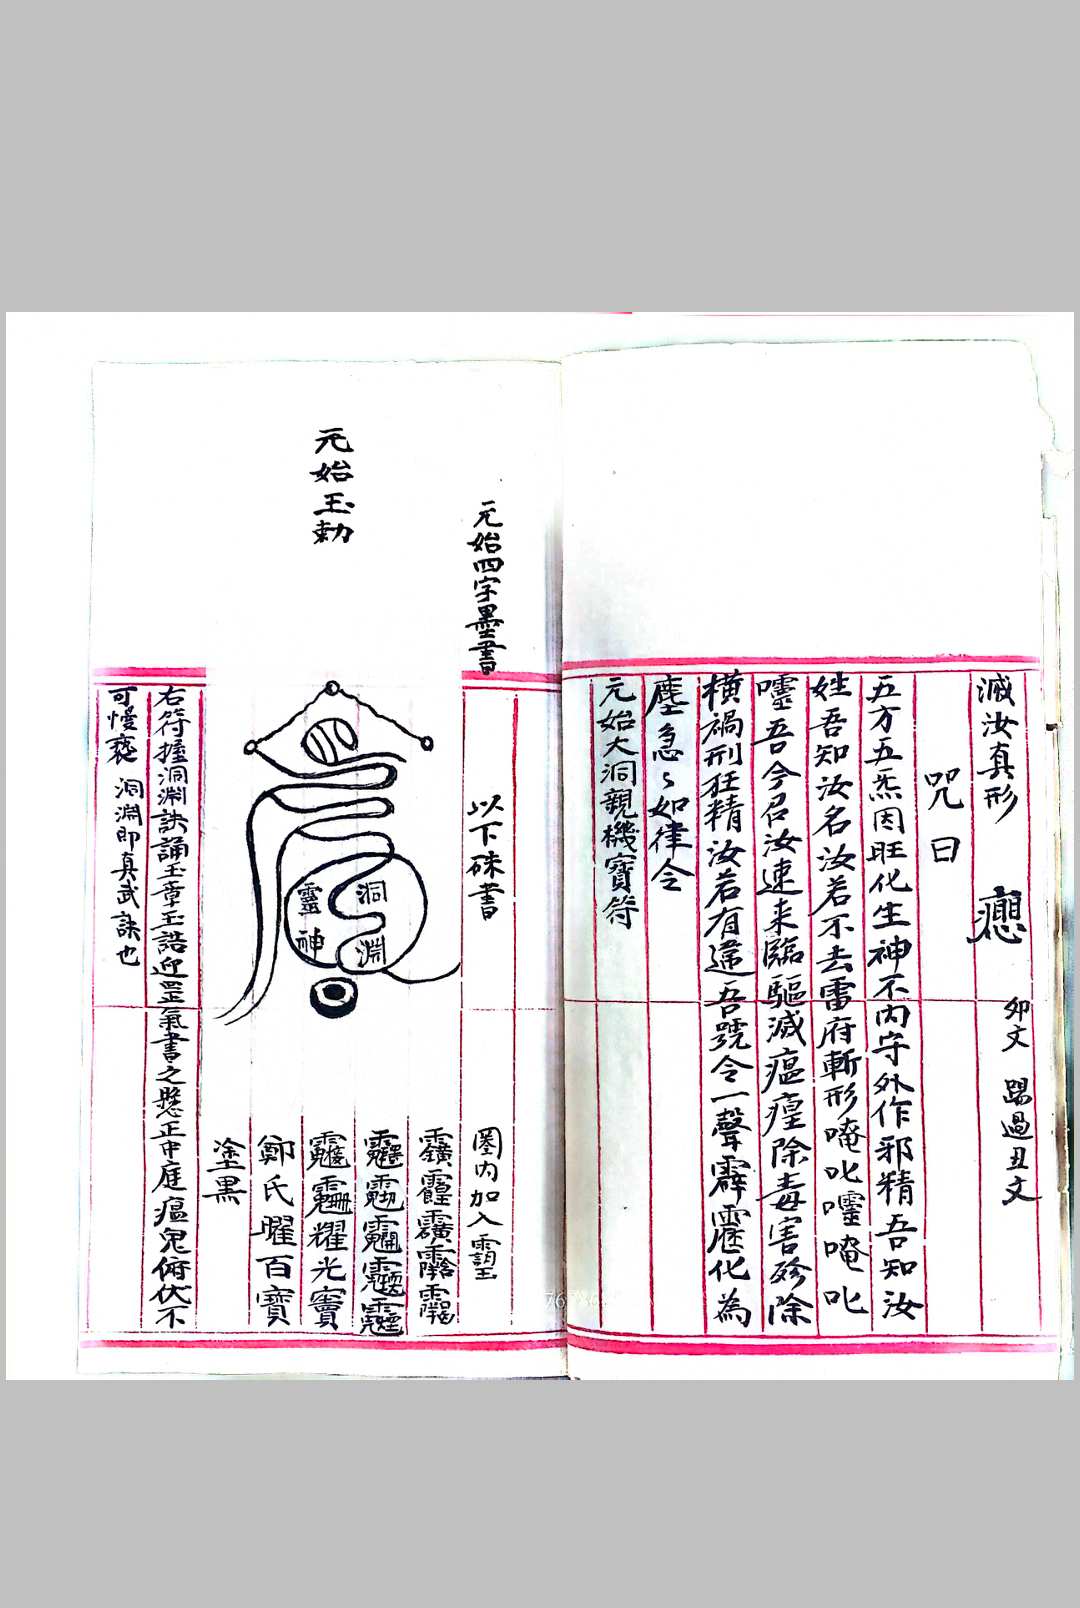 滅汝真形
卯文 踢過丑文
咒曰
五方五炁因旺化生神不內守外作邪精吾知汝
姓吾知汝名汝若不去雷府斬形唵叱嚤唵叱
吾今召汝速来臨驅滅瘟㾮除毒害殄除
橫禍刑狂精汝若有違吾號令一聲霹靂化為
塵急〻如律令
元始大洞親機寶符
元始四字墨書
以下硃書
圈內加入
元始玉勅
靈神
洞淵
耀光
鄭氏曜百寶
塗黑
右符握洞淵訣誦玉章玉誥迎罡氣書之懸正中庭瘟鬼俯伏不
可慢褻 洞淵即真武訣也